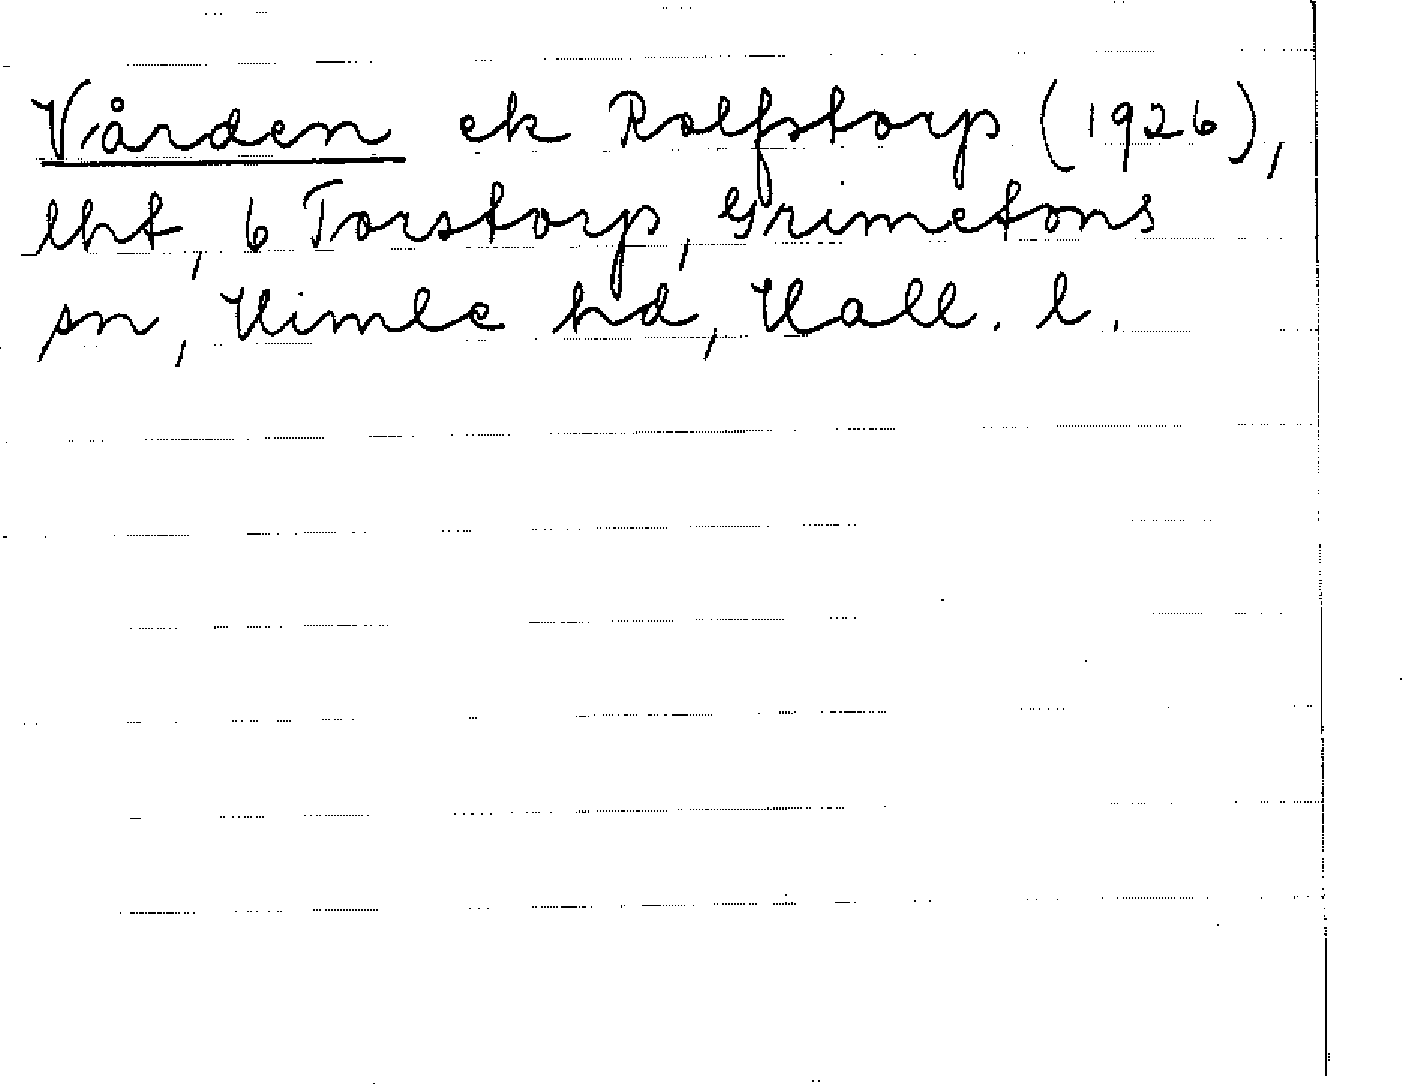 Vården ek Rolfstorp (1926),
lht, 6 Torstorp, Grimetons
sn, Himle hd, Hall. l.